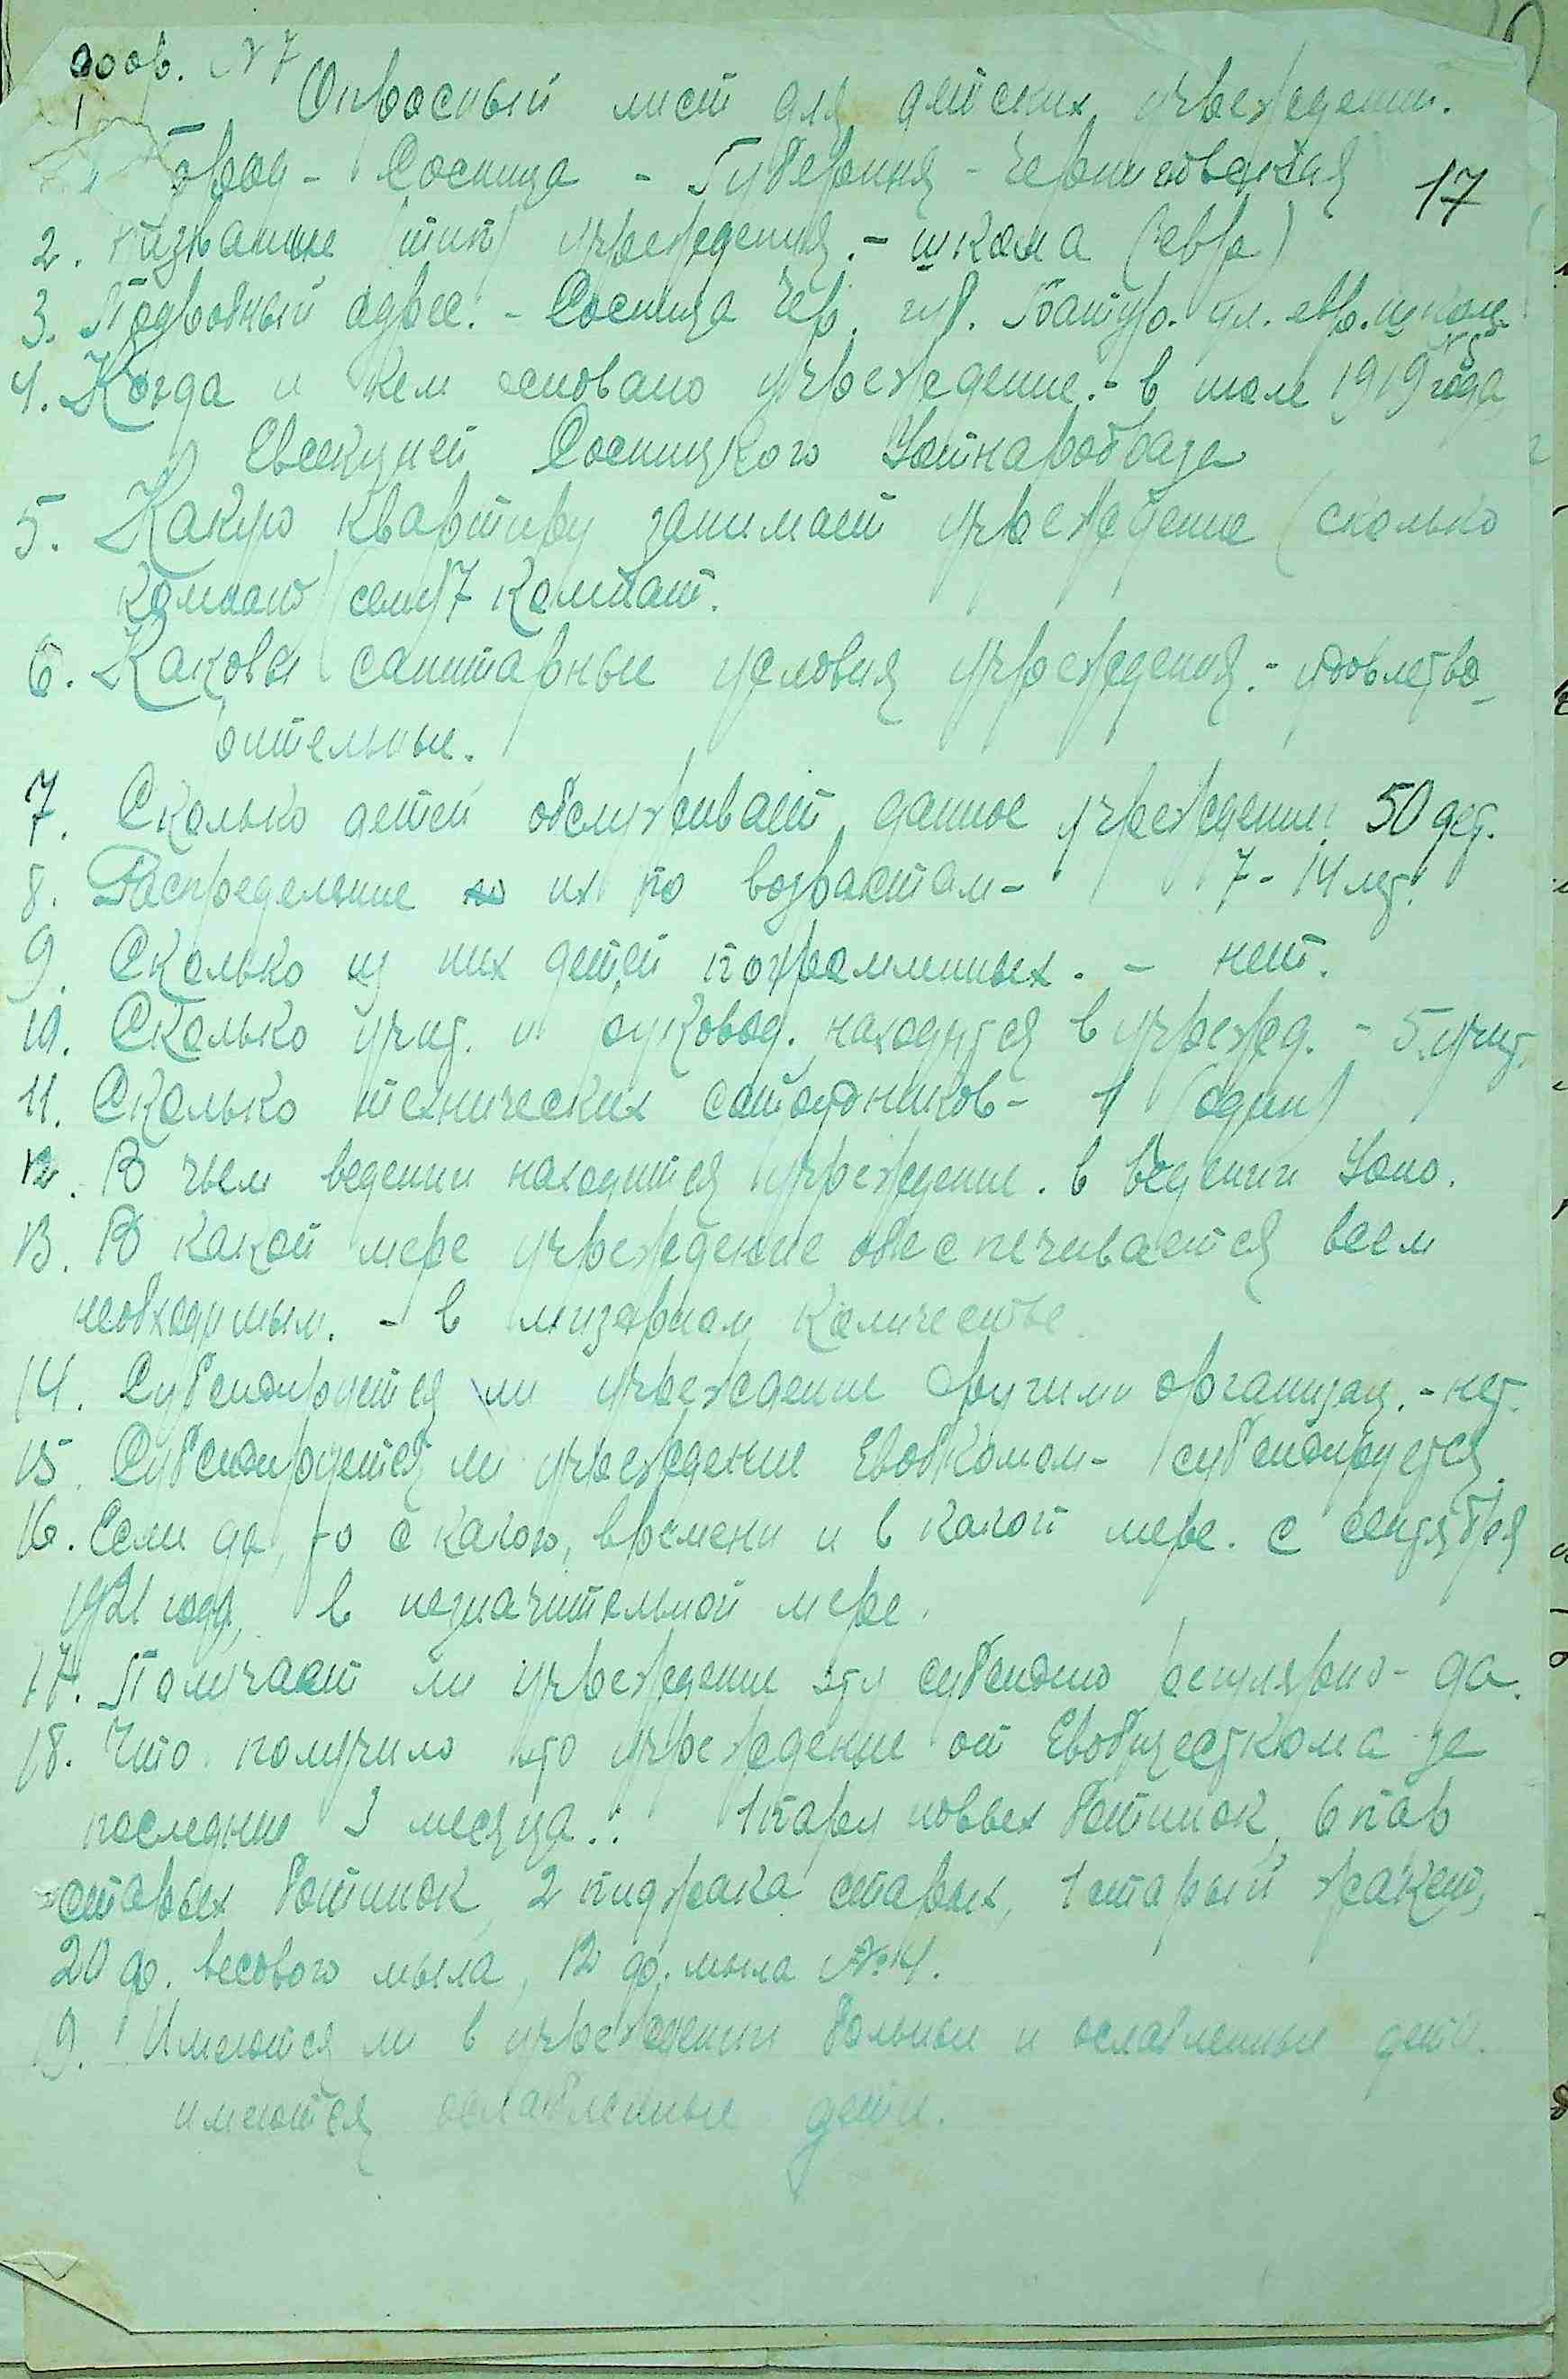 № 7
Опросный лист для детских учреждений.
17
1 Город - Сосница - Губерния - Черниговская
2. Название (тип) учреждения. - школа (евр.)
3. Подробный адрес. - Сосница Чер. губ. Батур. ул. евр. школа
№ 5
4. Когда и кем основано учреждение. - в июле 1919 года
Евсекцией Сосницкого Уотнаробраза
5. Какую квартиру занимает учреждение (сколько
комнат) (семь) 7 комнат.
6. Каковы санитарные условия учреждения. - удовлетво-
рительные.
7. Сколько детей обслуживает данное учреждение. 50 дет.
8. Распределение их по возрастам - 7 - 14 лет.
9. Сколько из них детей погромленных. - нет.
10. Сколько учит. и руковод. находится в учрежд. - 5 учит.
11. Сколько технических сотрудников - 1 (один)
12. В чьем ведении находится учреждение. в ведении Уоно.
13. В какой мере учреждение обеспечивается всем
необходимым. - в мизерном количестве.
14. Субсидируется ли учреждение другими организац. - нет.
15. Субсидируется ли учреждение Евобкомом - субсидируется.
16. Если да, то с какого времени и в какой мере. с сентября
1921 года, в незначительной мере.
17. Получает ли учреждение эту субсидию регулярно - да.
18. Что получило это учреждение от Евобщесткома за
последние 3 месяца.: 1 пару новых ботинок, 6 пар
старых ботинок, 2 пиджака старых, 1 старый жакет,
20 ф. весового мыла, 12 ф. мыла № 4.
19. Имеются ли в учреждении больные и ослабленные дети.
имеются ослабленные дети.